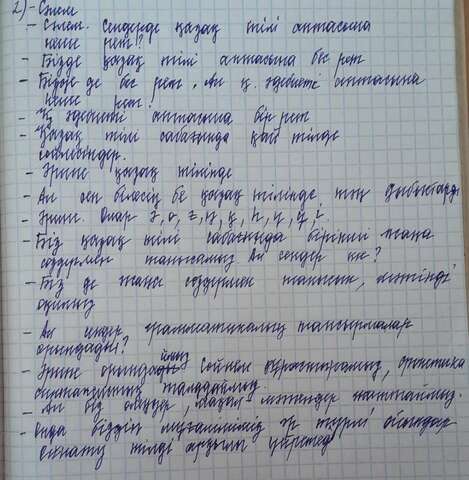 2) - Сәлем
- Сәлем. Сендерде қазақ тілі аптасына
неше рет?
- Бізде қазақ тілі аптасына бес рет
- Бізде де бес рет. Ал қ. әдебиеті аптасына
неше рет?
- Қ. әдебиеті аптасына бір рет
- Қазақ тілі сабағында қай тілде
сөйлейсіңдер.
- Әрине қазақ тілінде
- Ал сен білесің бе қазақ тілінде тән дыбыстарды
- Әрине. Олар ә, ө,
- Біз қазақ тілі сабағында бірінші жаңа
сөздермен танысамыз. Ал сендер ше?
- Біз де жаңа сөздермен танысып, мәтінді
оқимыз
- Ал сендер грамматикалық тапсырмалар
орындайсың?
- Әрине орындаймыз. Сөйлем құрастырамыз,
талдаймыз
- Ал біз өлеңдер, мақал-мәтелдер жаттаймыз.
- Онда біздің мұғаліміміз әр түрлі ойындар
тілді арқылы үйретеді